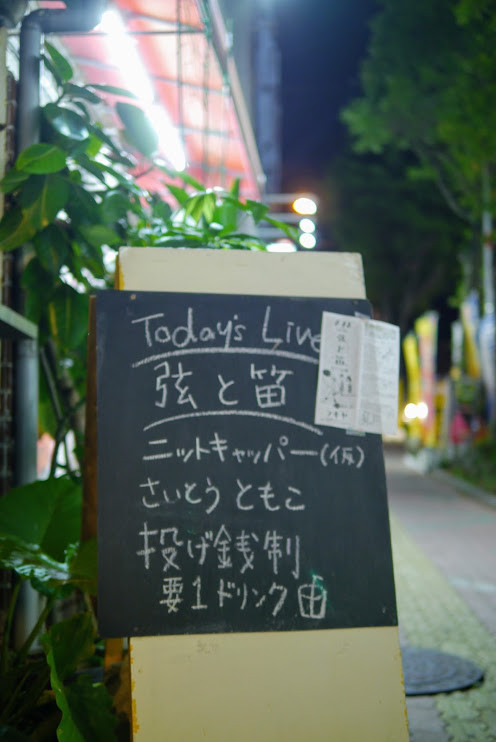 Today's Live
弦と笛
ニットキャッパー(仮)
さいとうともこ
投げ銭制
要1ドリンク